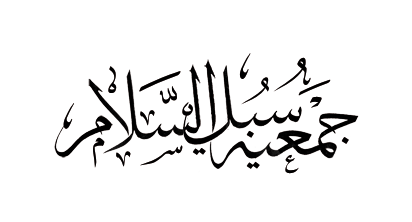 جمعية سبل السلام